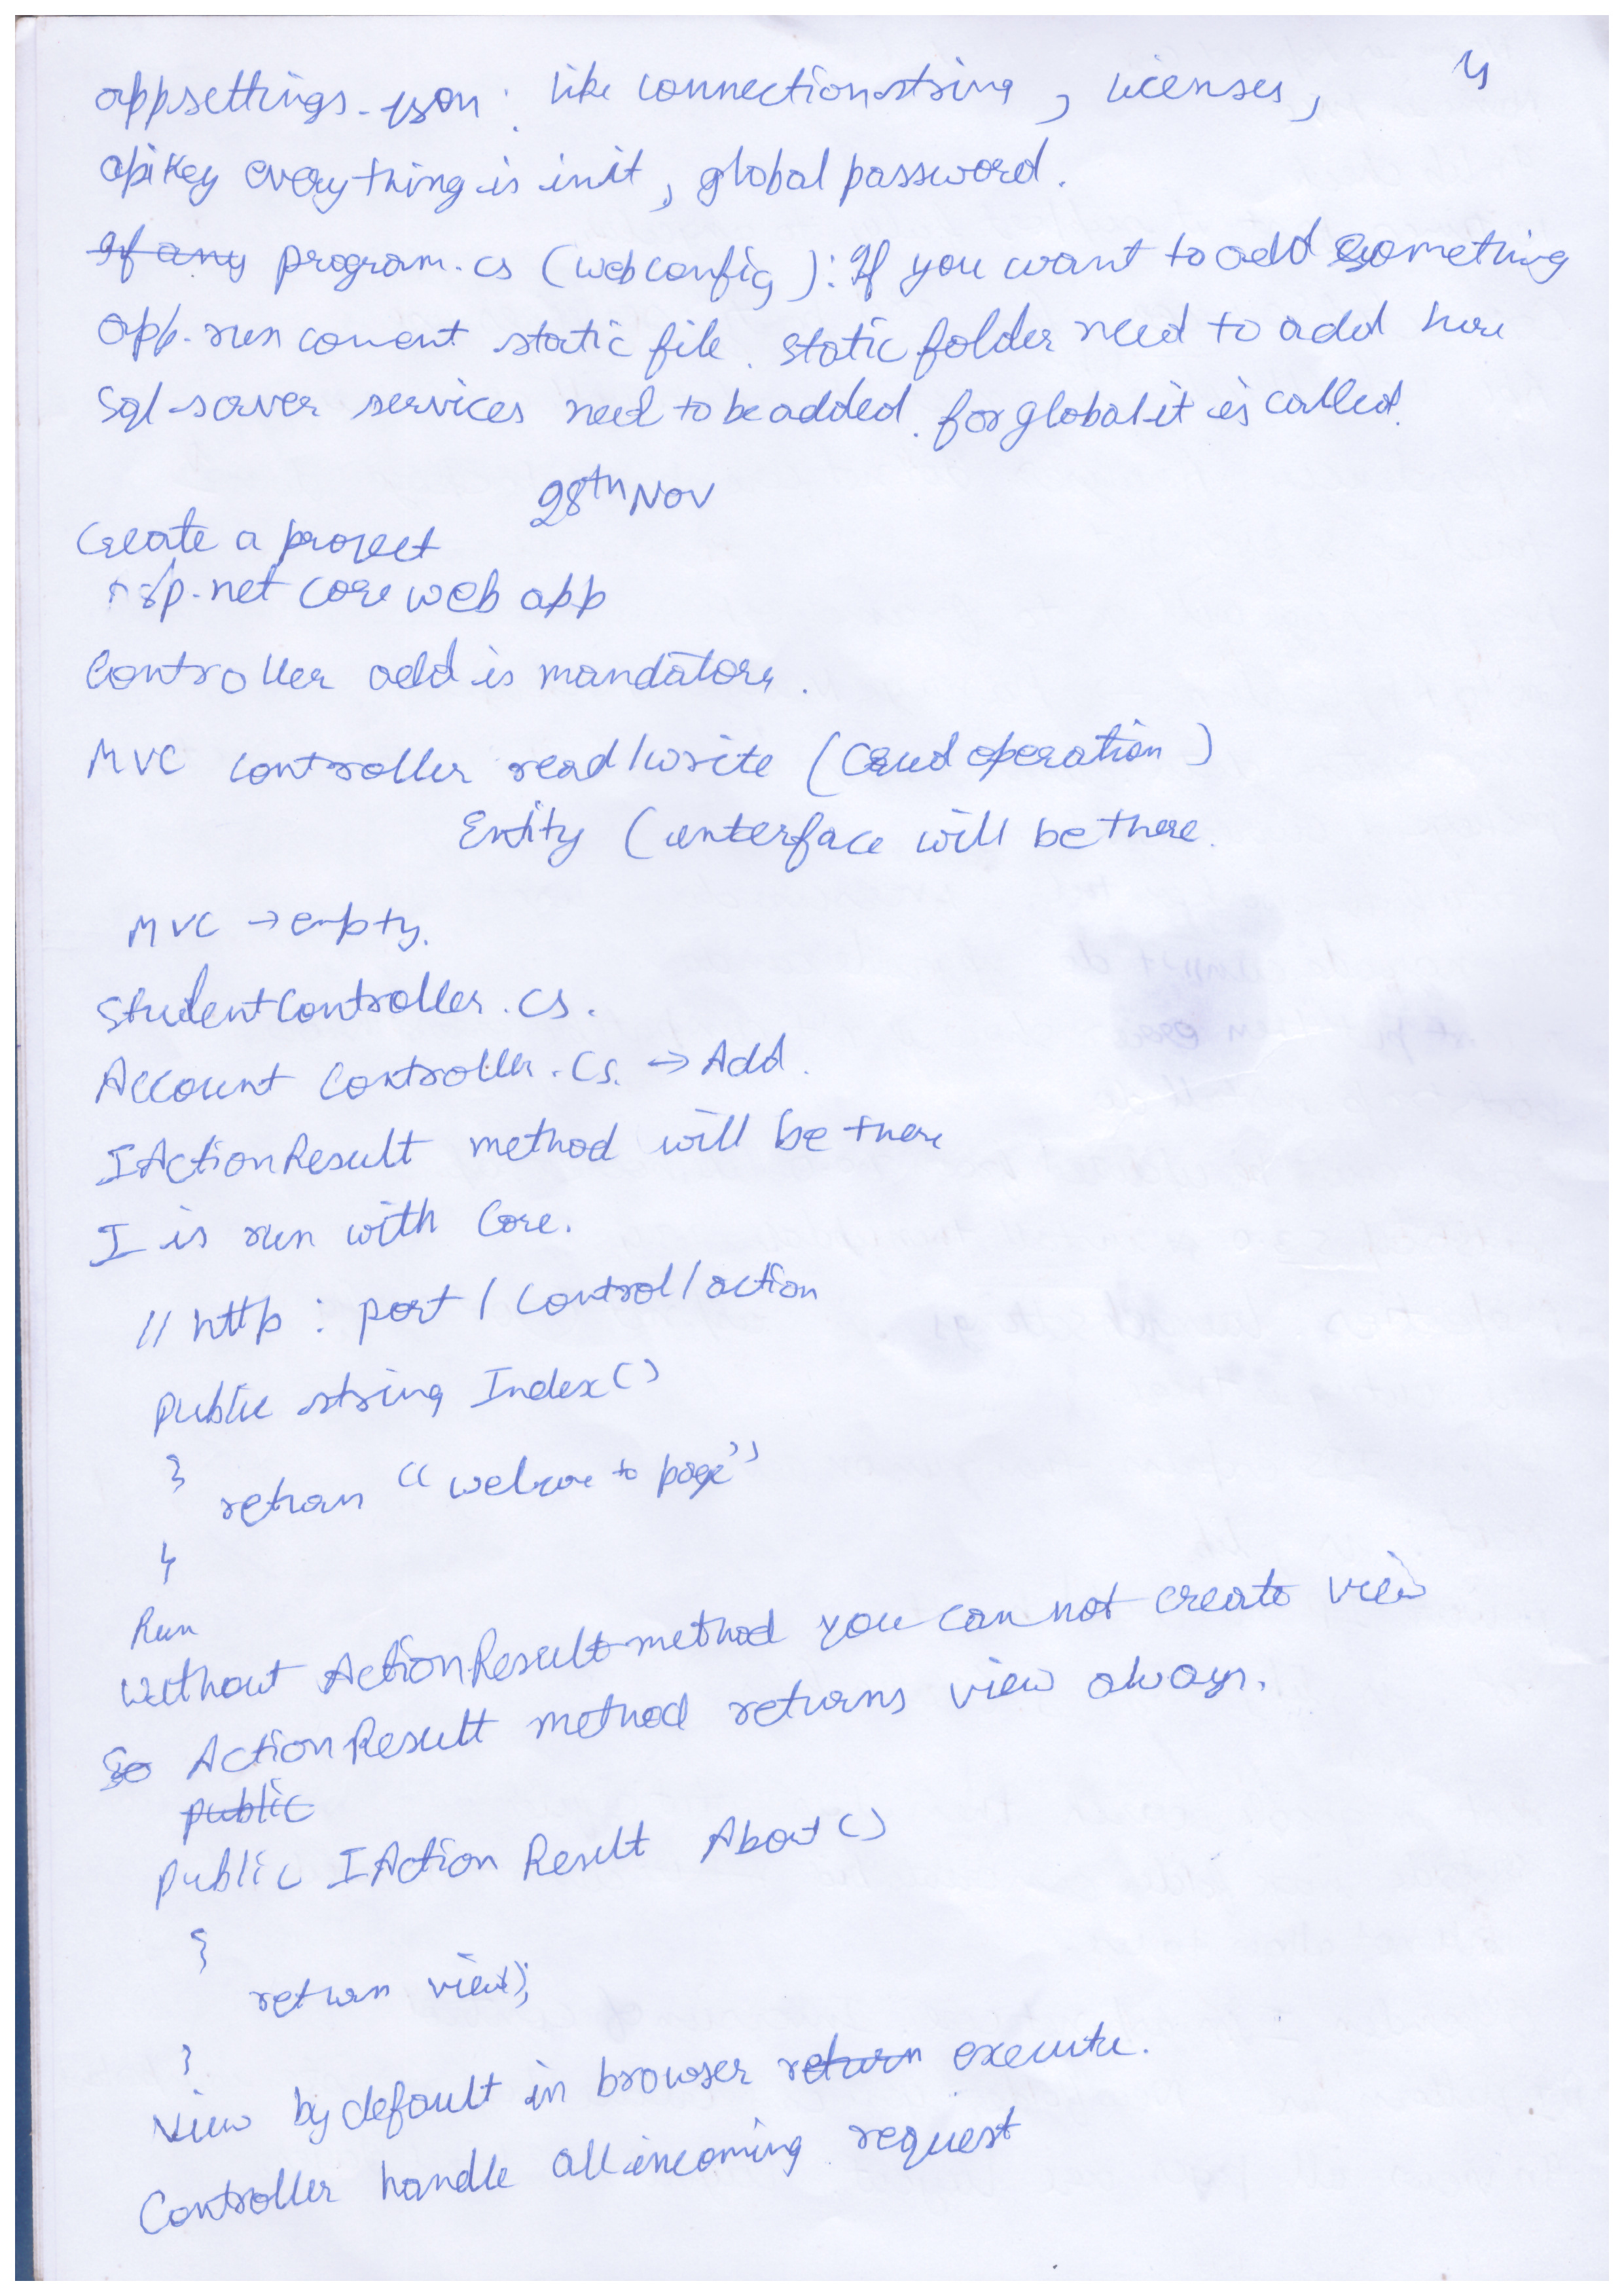 appsettings.json : like connectionstring, licenses, 4
apikey everything is in it, global password.
If any program.cs (webconfig): If you want to add something
app.run convent static file. static folder need to add here
Sql-server services need to be added. for global it is called.
28th Nov
Create a project
asp.net core web app
Controller add is mandatory.
MVC controller read/write (Crud operation)
Entity (interface will be there.
MVC → empty.
StudentController.cs.
Account Controller.cs. → Add.
IActionResult method will be there
I is run with Core.
// http : port / Control / action
public string Index()
{
return "welcome to page"
}
Run
without ActionResult method you can not create view
So ActionResult method returns view always.
public
public IAction Result About()
{
return view();
}
View by default in browser return execute.
Controller handle all incoming request